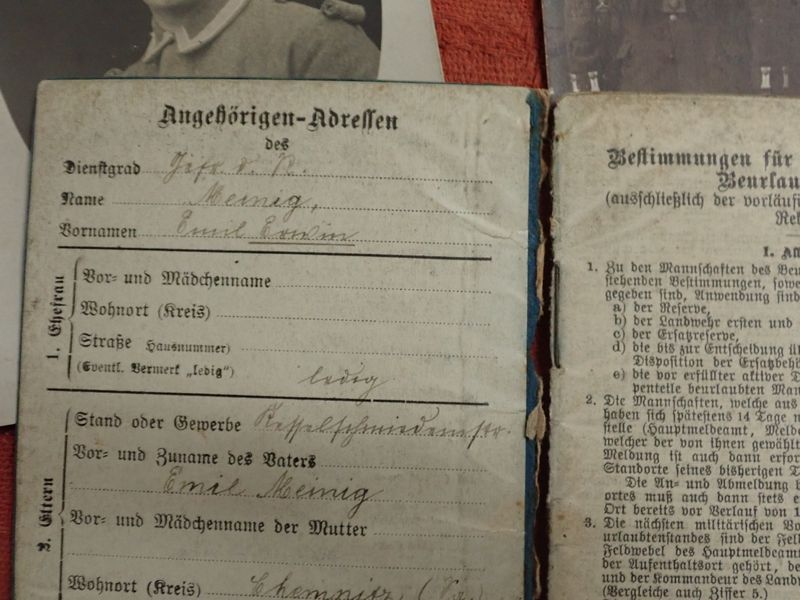 Angehörigen-Adressen
des
Dienstgrad Gefr. d. R.
Name Meinig,
Vornamen Emil Erwin
1. Ehefrau
Vor- und Mädchenname
Wohnort (Kreis)
Straße Hausnummer)
(Eventl. Vermerk „ledig“) ledig
2. Eltern
Stand oder Gewerbe Kesselschmiedemstr.
Vor- und Zuname des Vaters
Emil Meinig
Vor- und Mädchenname der Mutter
Wohnort (Kreis) Chemnitz, (Sa.)
Bestimmungen für
Beurlau
(ausschließlich der vorläufi
Re
I. All
1. Zu den Mannschaften des Beu
stehenden Bestimmungen, sowe
gegeben sind, Anwendung find
a) der Reserve,
b) der Landwehr ersten und
c) der Ersatzreserve,
d) die bis zur Entscheidung ü
Disposition der Ersatzbehö
e) die vor erfüllter aktiver D
penteile beurlaubten Man
2. Die Mannschaften, welche aus
haben sich spätestens 14 Tage n
stelle (Hauptmeldeamt, Melde
welcher der von ihnen gewählt
Meldung ist auch dann erfor
Standorte seines bisherigen T
Die An- und Abmeldung b
ortes muß auch dann stets e
Ort bereits vor Verlauf von 1
3. Die nächsten militärischen Vo
urlaubtenstandes sind der Fel
Feldwebel des Hauptmeldeamt
der Aufenthaltsort gehört, de
und der Kommandeur des Landw
(Vergleiche auch Ziffer 5.)